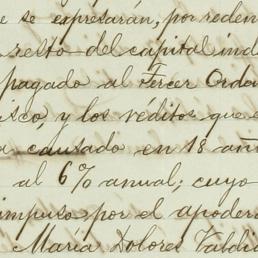 e se expresarán, por reden
resto del capital ind
pagado al Tercer Orde
isco, y los réditos que
causado en 18 añ
al 6% anual; cuyo
impuso por el apoder
María Dolores Valdi